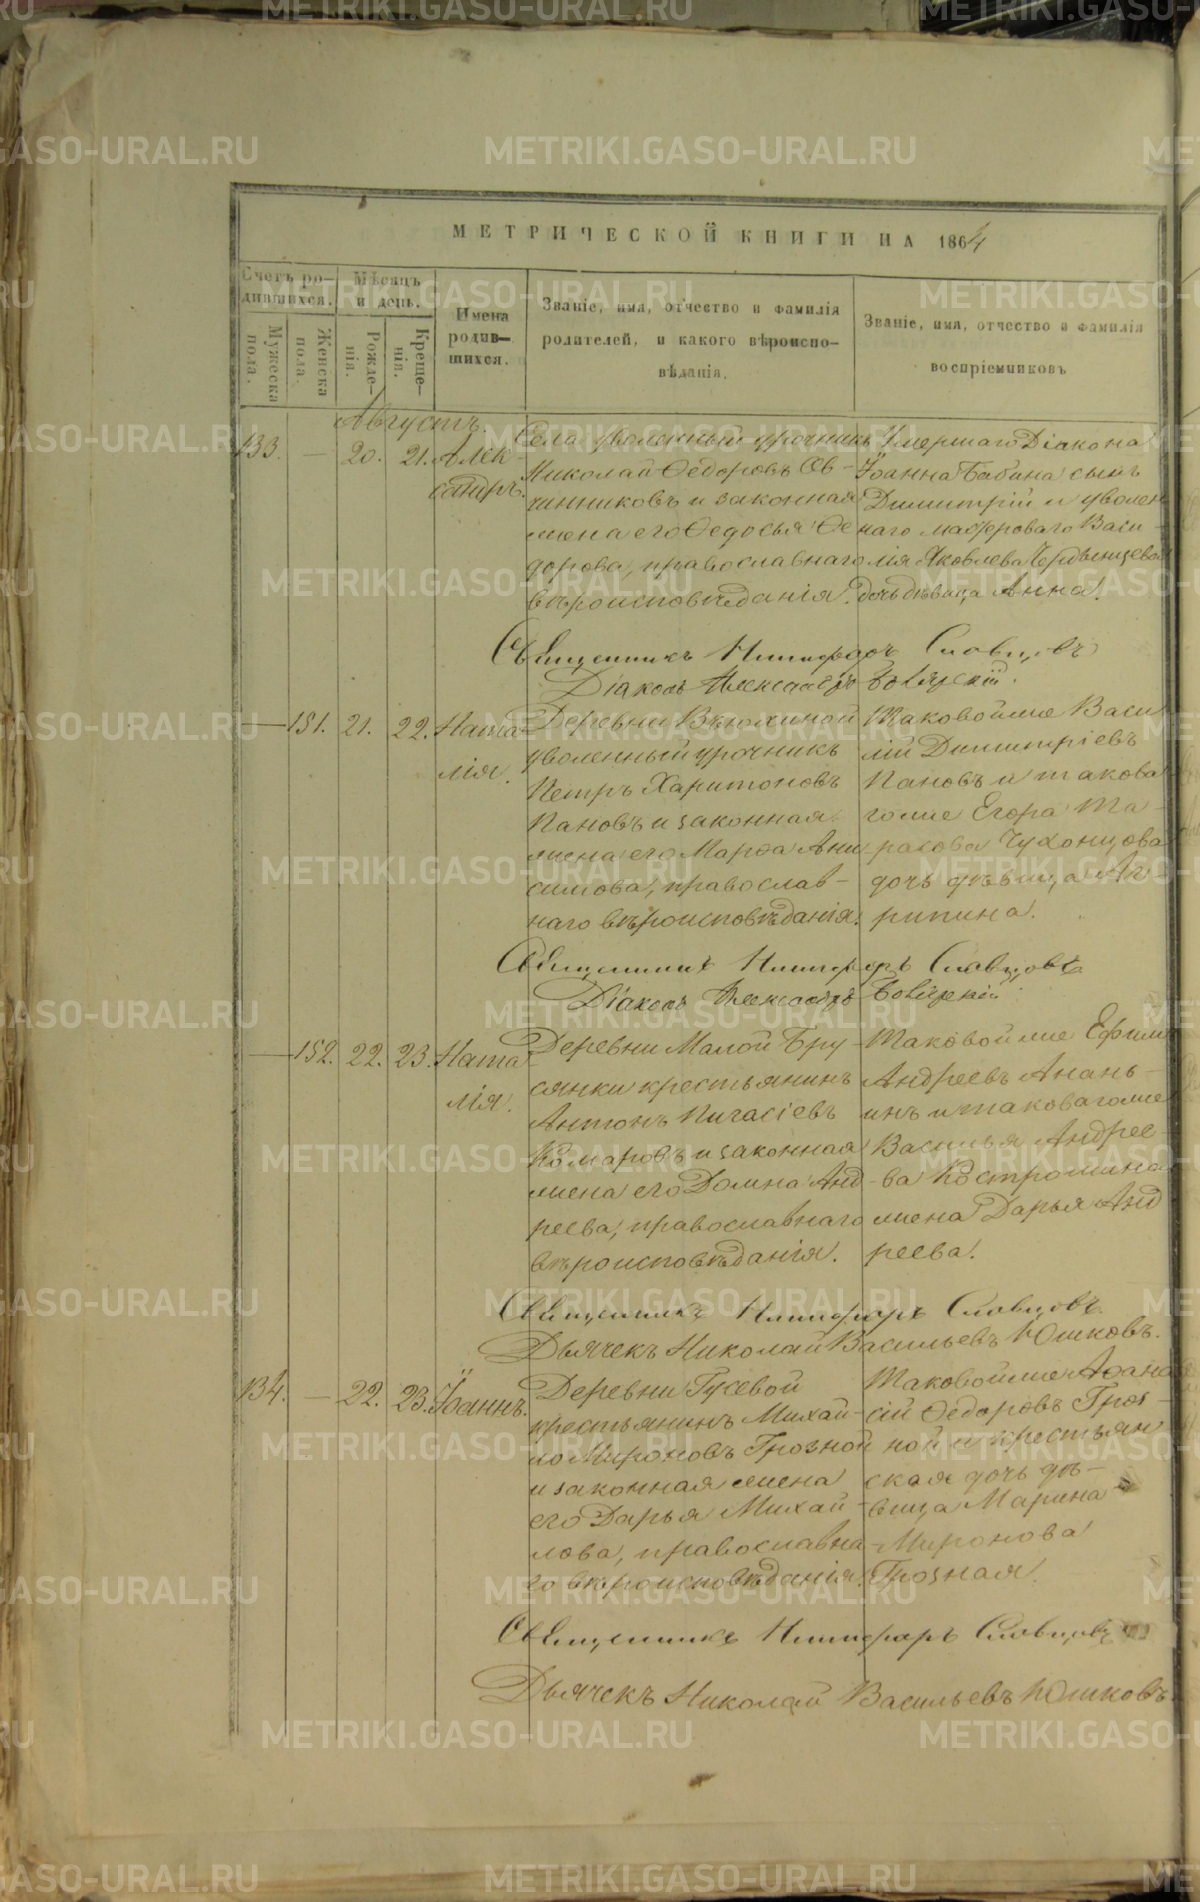 МЕТРИЧЕСКОЙ КНИГИ НА 1864
Счетъ ро-
дившихся.
Мѣсяцъ
и день.
Имена
родив-
шихся.
Званіе, имя, отчество и фамилія
родителей, и какого вѣроиспо-
вѣданія.
Званіе, имя, отчество и фамилія
воспріемниковъ
Мужеска
пола.
Женска
пола.
Рожде-
нія.
Креще-
нія.
Августъ.
133. — 20. 21. Алек-
сандръ.
Села уволенный урочникъ
Николай Ѳедоровъ Ов-
чинниковъ и законная
жена его Ѳедосья Ѳе
дорова, православнаго
вѣроисповѣданія.
Умершаго Діакона
Іоанна Бабина сынъ
Димитрій и уволен
наго мастероваго Васи-
лія Яковлева
дочь дѣвица Анна.
Священникъ Никифоръ Словцовъ
Діаконъ Александръ
— 151. 21. 22. Ната
лія.
Деревни Вѣтохиной
уволенный урочникъ
Петръ Харитоновъ
Пановъ и законная
жена его Марѳа Ани
симова, православ-
наго вѣроисповѣданія.
Таковой же Васи
лій Димитріевъ
Пановъ и такова
го же Егора Та-
расова Чухонцова
дочь дѣвица Аг-
рипина.
Священникъ Никифоръ Словцовъ
Діаконъ Александръ
— 152. 22. 23. Ната
лія.
Деревни Малой Бру-
сянки крестьянинъ
Антонъ Пигасіевъ
Комаровъ и законная
жена его Домна Анд-
реева, православнаго
вѣроисповѣданія.
Таковой же Ефимъ
Андреевъ Анань-
инъ и таковаго же
Василья Андрее-
ва Костромина
жена Дарья Анд
реева.
Священникъ Никифоръ Словцовъ.
Дьячекъ Николай Васильевъ Юшковъ.
134. — 22. 23. Іоаннъ.
Деревни Гусевой
крестьянинъ Михай-
ло Мироновъ Грозной
и законная жена
его Дарья Михай-
лова, православна-
го вѣроисповѣданія.
Таковой же Аѳана
сій Ѳедоровъ Гроз-
ной и крестьян
ская дочь дѣ-
вица Марина
Миронова
Грозная.
Священникъ Никифоръ Словцовъ
Дьячекъ Николай Васильевъ Юшковъ
METRIKI.GASO-URAL.RU